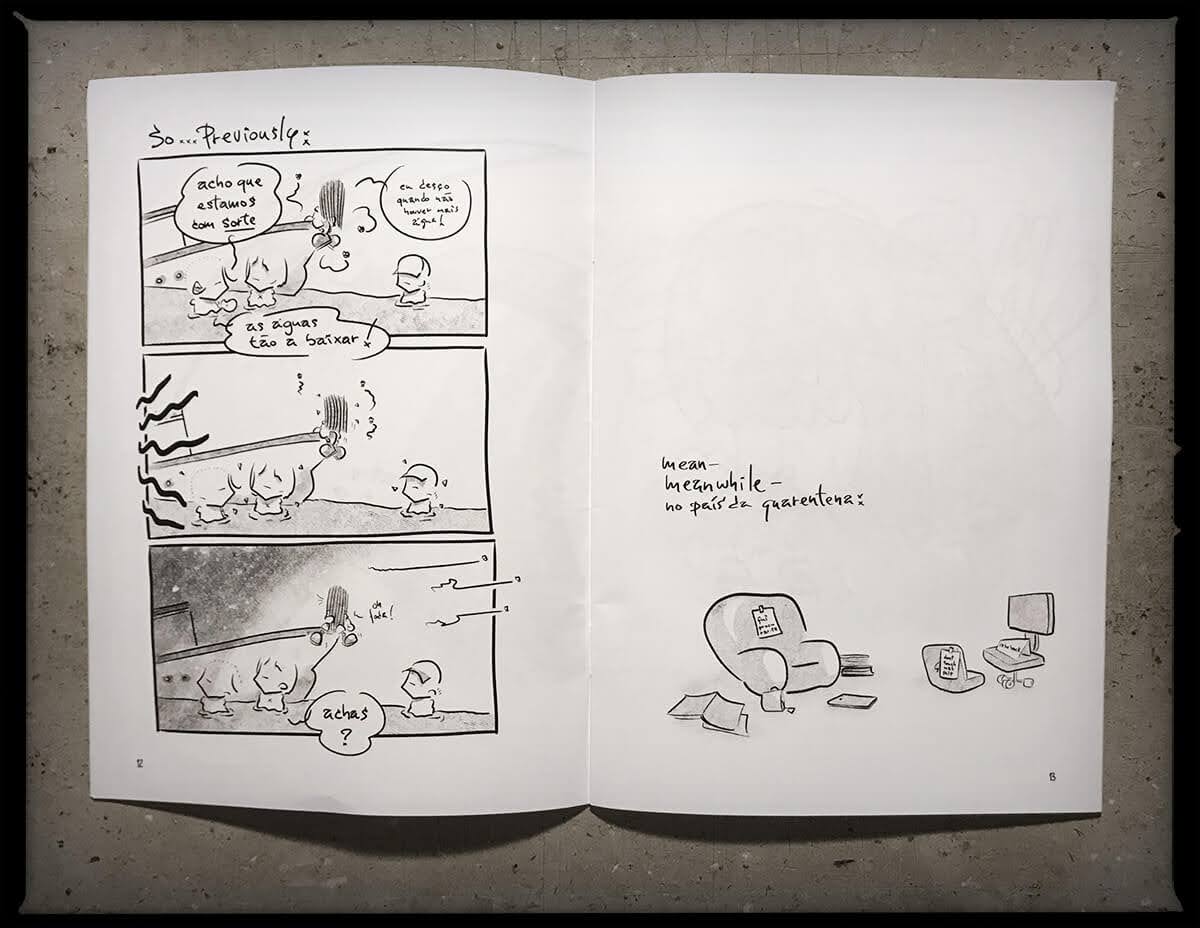 So... Previously:
acho que
estamos
com sorte
eu desço
quando não
houver mais
água!
as águas
tão a baixar!
oh
achas
?
12
mean-
meanwhile-
no país da quarentena:
fui
13